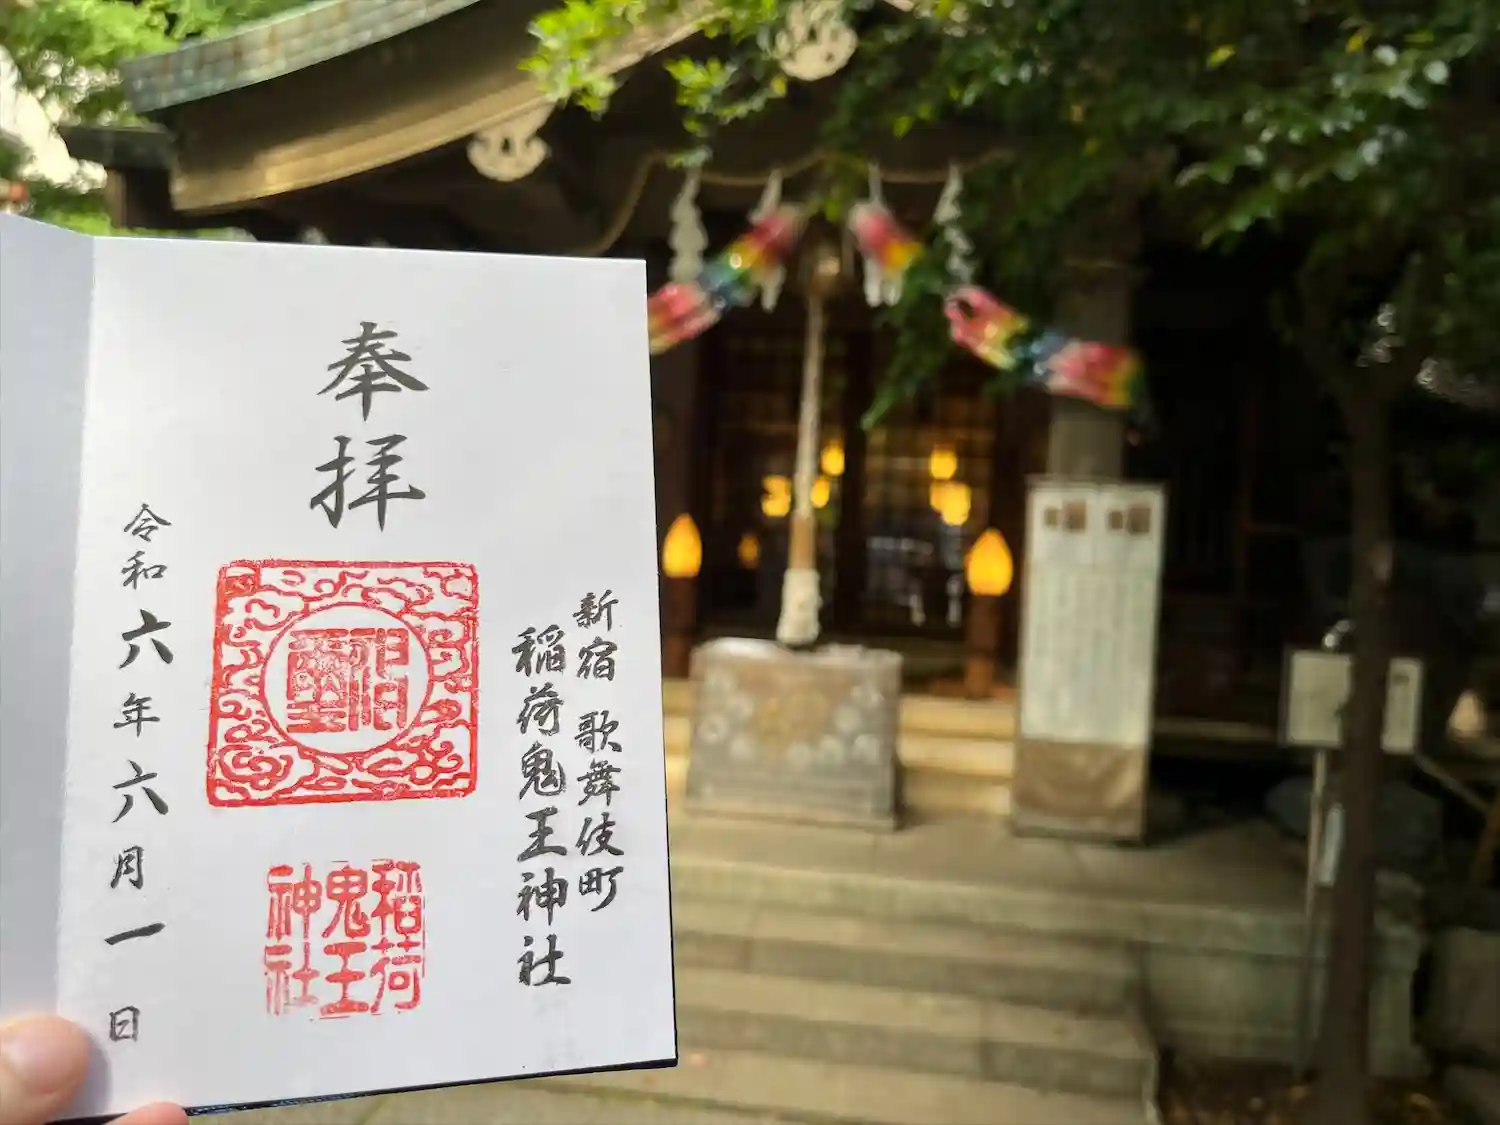 新宿 歌舞伎町
稲荷鬼王神社
奉拝
稲荷
鬼王
神社
令和六年六月一日